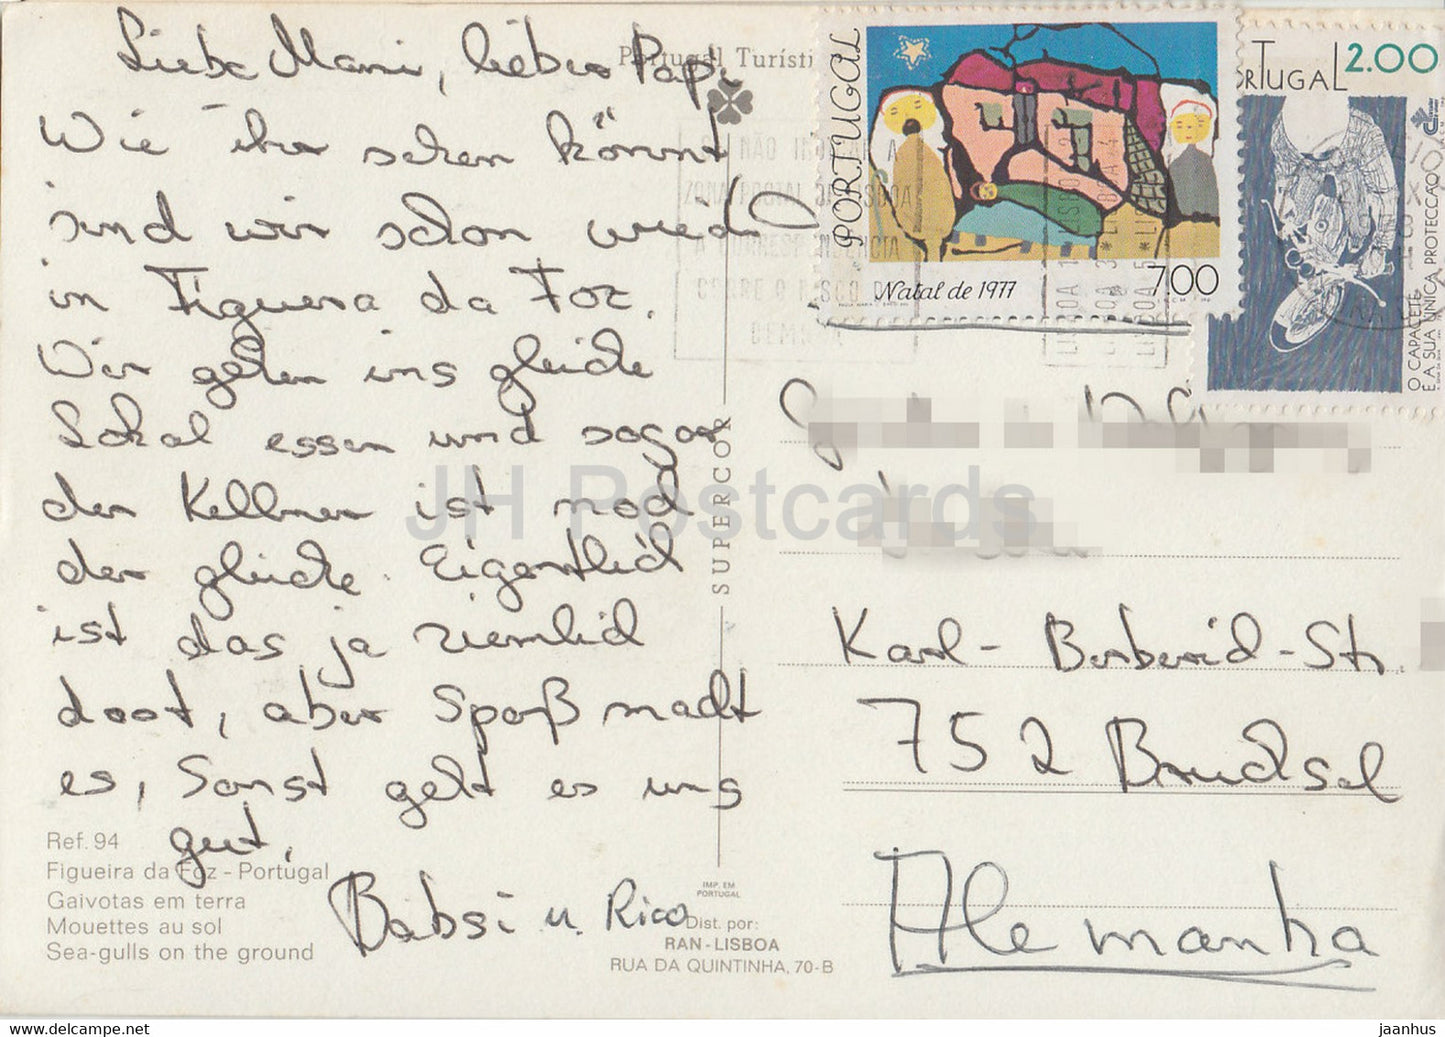 Liebe Mami, lieber Papi
Wie ihr sehen könnt
sind wir schon wieder
in Figuera da Foz.
Wir gehen ins gleiche
Lokal essen und sogar
der Kellner ist noch
der gleiche. Eigentlich
ist das ja ziemlich
doof, aber Spaß macht
es, Sonst geht es uns
gut,
Babsi u. Rico
Portugal Turísti
PORTUGAL
Natal de 1977
7.00
PORTUGAL 2.00
O CAPACETE
É A SUA ÚNICA PROTECÇÃO
SUPERCOR
Karl-Berberich-Str.
752 Bruchsal
Alemanha
Ref. 94
Figueira da Foz - Portugal
Gaivotas em terra
Mouettes au sol
Sea-gulls on the ground
IMP. EM
PORTUGAL
Dist. por:
RAN-LISBOA
RUA DA QUINTINHA, 70-B
JH Postcards
www.delcampe.net
jaanhus